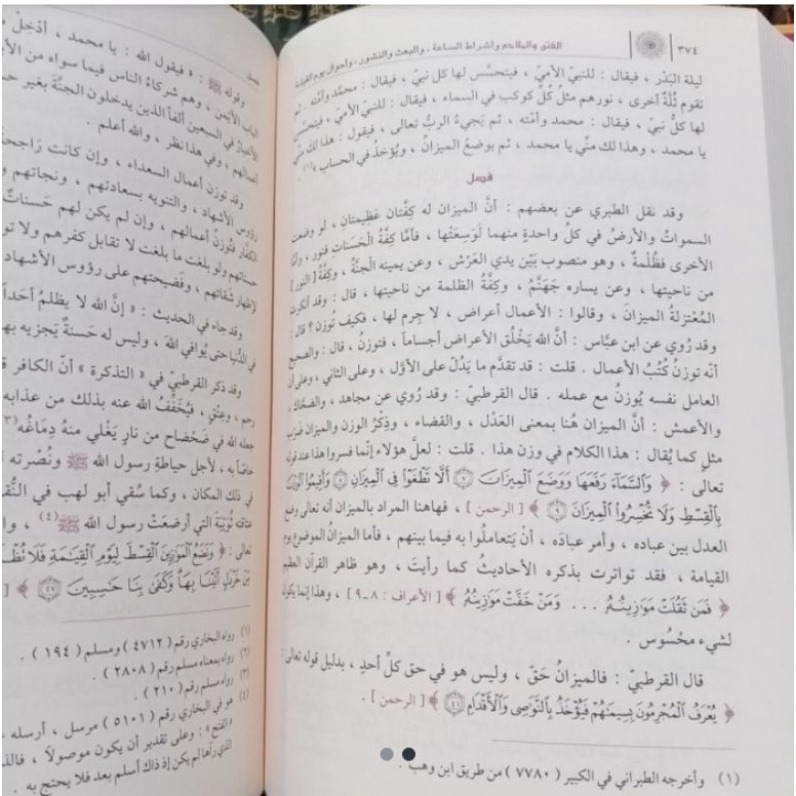 ٣٧٤
الفتن والملاحم وأشراط الساعة ، والبعث والنشور ، وأحوال يوم القيامة
ليلة البَدْر ، فيقال : للنبيّ الأميّ ، فيتحسَّس لها كل نبيّ ، فيقال : محمَّد وأمَّته . ثم
تقوم ثُلَّة أخرى ، نورهم مثلُ كُلِّ كوكب في السماء ، فيقال : للنبيّ الأميّ ، فيتحسَّس
لها كلُّ نبيّ ، فيقال : محمد وأمّته ، ثم يَجيءُ الربُّ تعالى ، فيقول : هذا لك منِّي
يا محمد ، وهذا لك منِّي يا محمد ، ثم يوضعُ الميزانُ ، ويُؤخذُ في الحساب »(١) .
فصل
وقد نقل الطبري عن بعضهم : أنَّ الميزان له كِفَّتان عَظِيمتانِ ، لو وضعت
السمواتُ والأرضُ في كلِّ واحدةٍ منهما لَوَسِعَتْها ، فأمّا كِفَّةُ الحَسَناتِ فنور ، وأمّا
الأخرى فظُلْمةٌ ، وهو منصوب بَيْن يدي العَرْش ، وعن يمينه الجنَّةُ ، وكِفَّةُ [ النور ]
من ناحيتها ، وعن يساره جَهَنَّمُ ، وكِفَّةُ الظلمة من ناحيتها ، قال : وقد أنكرت
المُعْتزلةُ الميزانَ ، وقالوا : الأعمال أعراض ، لا جِرم لها ، فكيف تُوزن ؟ قال :
وقد رُوي عن ابن عبَّاس : أنَّ الله يَخْلُق الأعراض أجساماً ، فتوزنُ ، قال : والصحيح
أنّه توزنُ كُتُبُ الأعمال . قلت : قد تقدَّم ما يَدُلّ على الأوَّل ، وعلى الثاني ، وعلى أن
العامل نفسه يُوزنُ مع عمله . قال القرطبيّ : وقد رُوي عن مجاهد ، والضحَّاك ،
والأعمش : أنَّ الميزان هُنا بمعنى العَدْل ، والقضاء ، وذِكرُ الوزن والميزان ضَرْبُ
مثلٍ كما يُقال : هذا الكلام في وزن هذا . قلت : لعلَّ هؤلاء إنّما فسروا هذا عند قوله
تعالى : ﴿ وَالسَّمَاءَ رَفَعَهَا وَوَضَعَ الْمِيزَانَ ۝٧ أَلَّا تَطْغَوْا فِي الْمِيزَانِ ۝٨ وَأَقِيمُوا الْوَزْنَ
بِالْقِسْطِ وَلَا تُخْسِرُوا الْمِيزَانَ ۝٩ ﴾ [ الرحمن ] ، فهاهنا المراد بالميزان أنه تعالى وضع
العدل بين عباده ، وأمر عبادَه ، أنْ يَتعاملُوا به فيما بينهم ، فأما الميزانُ الموضوع يوم
القيامة ، فقد تواترت بذكره الأحاديثُ كما رأيتَ ، وهو ظاهر القرآن العظيم
﴿ فَمَن ثَقُلَتْ مَوَازِينُهُ ... وَمَنْ خَفَّتْ مَوَازِينُهُ ﴾ [ الأعراف : ٨ـ٩ ] ، وهذا إنما يكون
لشيء محْسُوس .
قال القرطبيّ : فالميزانُ حَقّ ، وليس هو في حق كلِّ أحدٍ ، بدليل قوله تعالى :
﴿ يُعْرَفُ الْمُجْرِمُونَ بِسِيمَاهُمْ فَيُؤْخَذُ بِالنَّوَاصِي وَالْأَقْدَامِ ۝٤١ ﴾ [ الرحمن ] .
(١) وأخرجه الطبراني في الكبير ( ٧٧٨٠ ) من طريق ابن وهب .
فصل
وقوله ﷺ : « فيقول الله : يا محمد ، أدْخِلْ
الباب الأيْمن ، وهم شركاءُ الناس فيما سواه من الأ
الأخبارُ في السبعين ألفاً الذين يدخلون الجنَّة بغير ح
أعمالهم ، وفي هذا نظر ، والله أعلم .
وقد توزن أعمال السعداء ، وإن كانت رَاجحة
رؤوس الأشهاد ، والتنويه بسعادتهم ، ونجاتهم و
الكفّار فتُوزنُ أعمالهم ، وإن لم يكن لهم حَسناتٌ
حسناتهم ولو بلغت ما بلغت لا تقابل كفرهم ولا تو
لإظهار شَقائهم ، وفَضيحتهم على رؤوس الأشهاد
وقد جاء في الحديث : « إنَّ الله لا يظلمُ أحداً
في الدُّنيا حتى يُوافي اللهَ ، وليس له حَسنةٌ يَجزيه به
وقد ذكر القرطبيّ في « التذكرة » أنّ الكافر ق
رحم ، وعِتْقٍ ، فيُخَفِّفُ الله عنه بذلك من عذابه
جعله الله في ضَحْضاح من نارٍ يَغْلي منهُ دِمَاغُه(٣
خاصّاً به ، لأجل حياطةِ رسول الله ﷺ ونُصْرته
في ذلك المكان ، وكما سُقي أبو لهب في النُّق
عتاقه ثُوَيْبَة التي أرضعَتْ رسول الله ﷺ(٤) ، وا
تعالى : ﴿ وَنَضَعُ الْمَوَازِينَ الْقِسْطَ لِيَوْمِ الْقِيَامَةِ فَلَا تُظْ
مِّنْ خَرْدَلٍ أَتَيْنَا بِهَا وَكَفَىٰ بِنَا حَاسِبِينَ ۝٤٧ ﴾ [
(١) رواه البخاري رقم ( ٤٧١٢ ) ومسلم ( ١٩٤ ) .
(٢) رواه بمعناه مسلم رقم ( ٢٨٠٨ ) .
(٣) رواه مسلم رقم ( ٢١٠ ) .
(٤) هو في البخاري رقم ( ٥١٠١ ) مرسل ، أرسله
« الفتح » : وعلى تقدير أن يكون موصولاً ، فالذ
الذي رآها لم يكن إذ ذاك أسلم بعد فلا يحتج به .